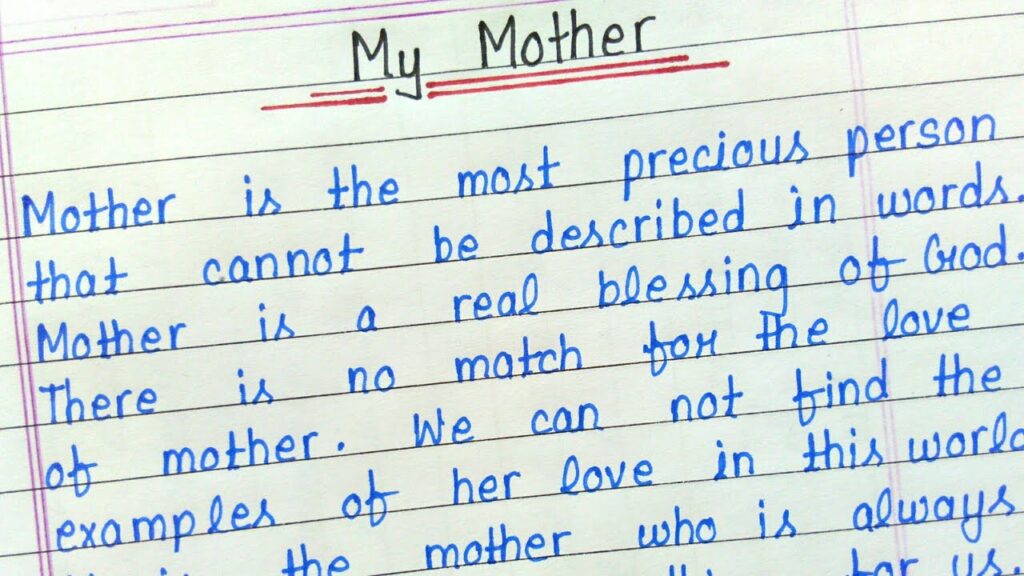 My Mother
Mother is the most precious person
that cannot be described in words.
Mother is a real blessing of God.
There is no match for the love
of mother. We can not find the
examples of her love in this world
the mother who is always
for us.